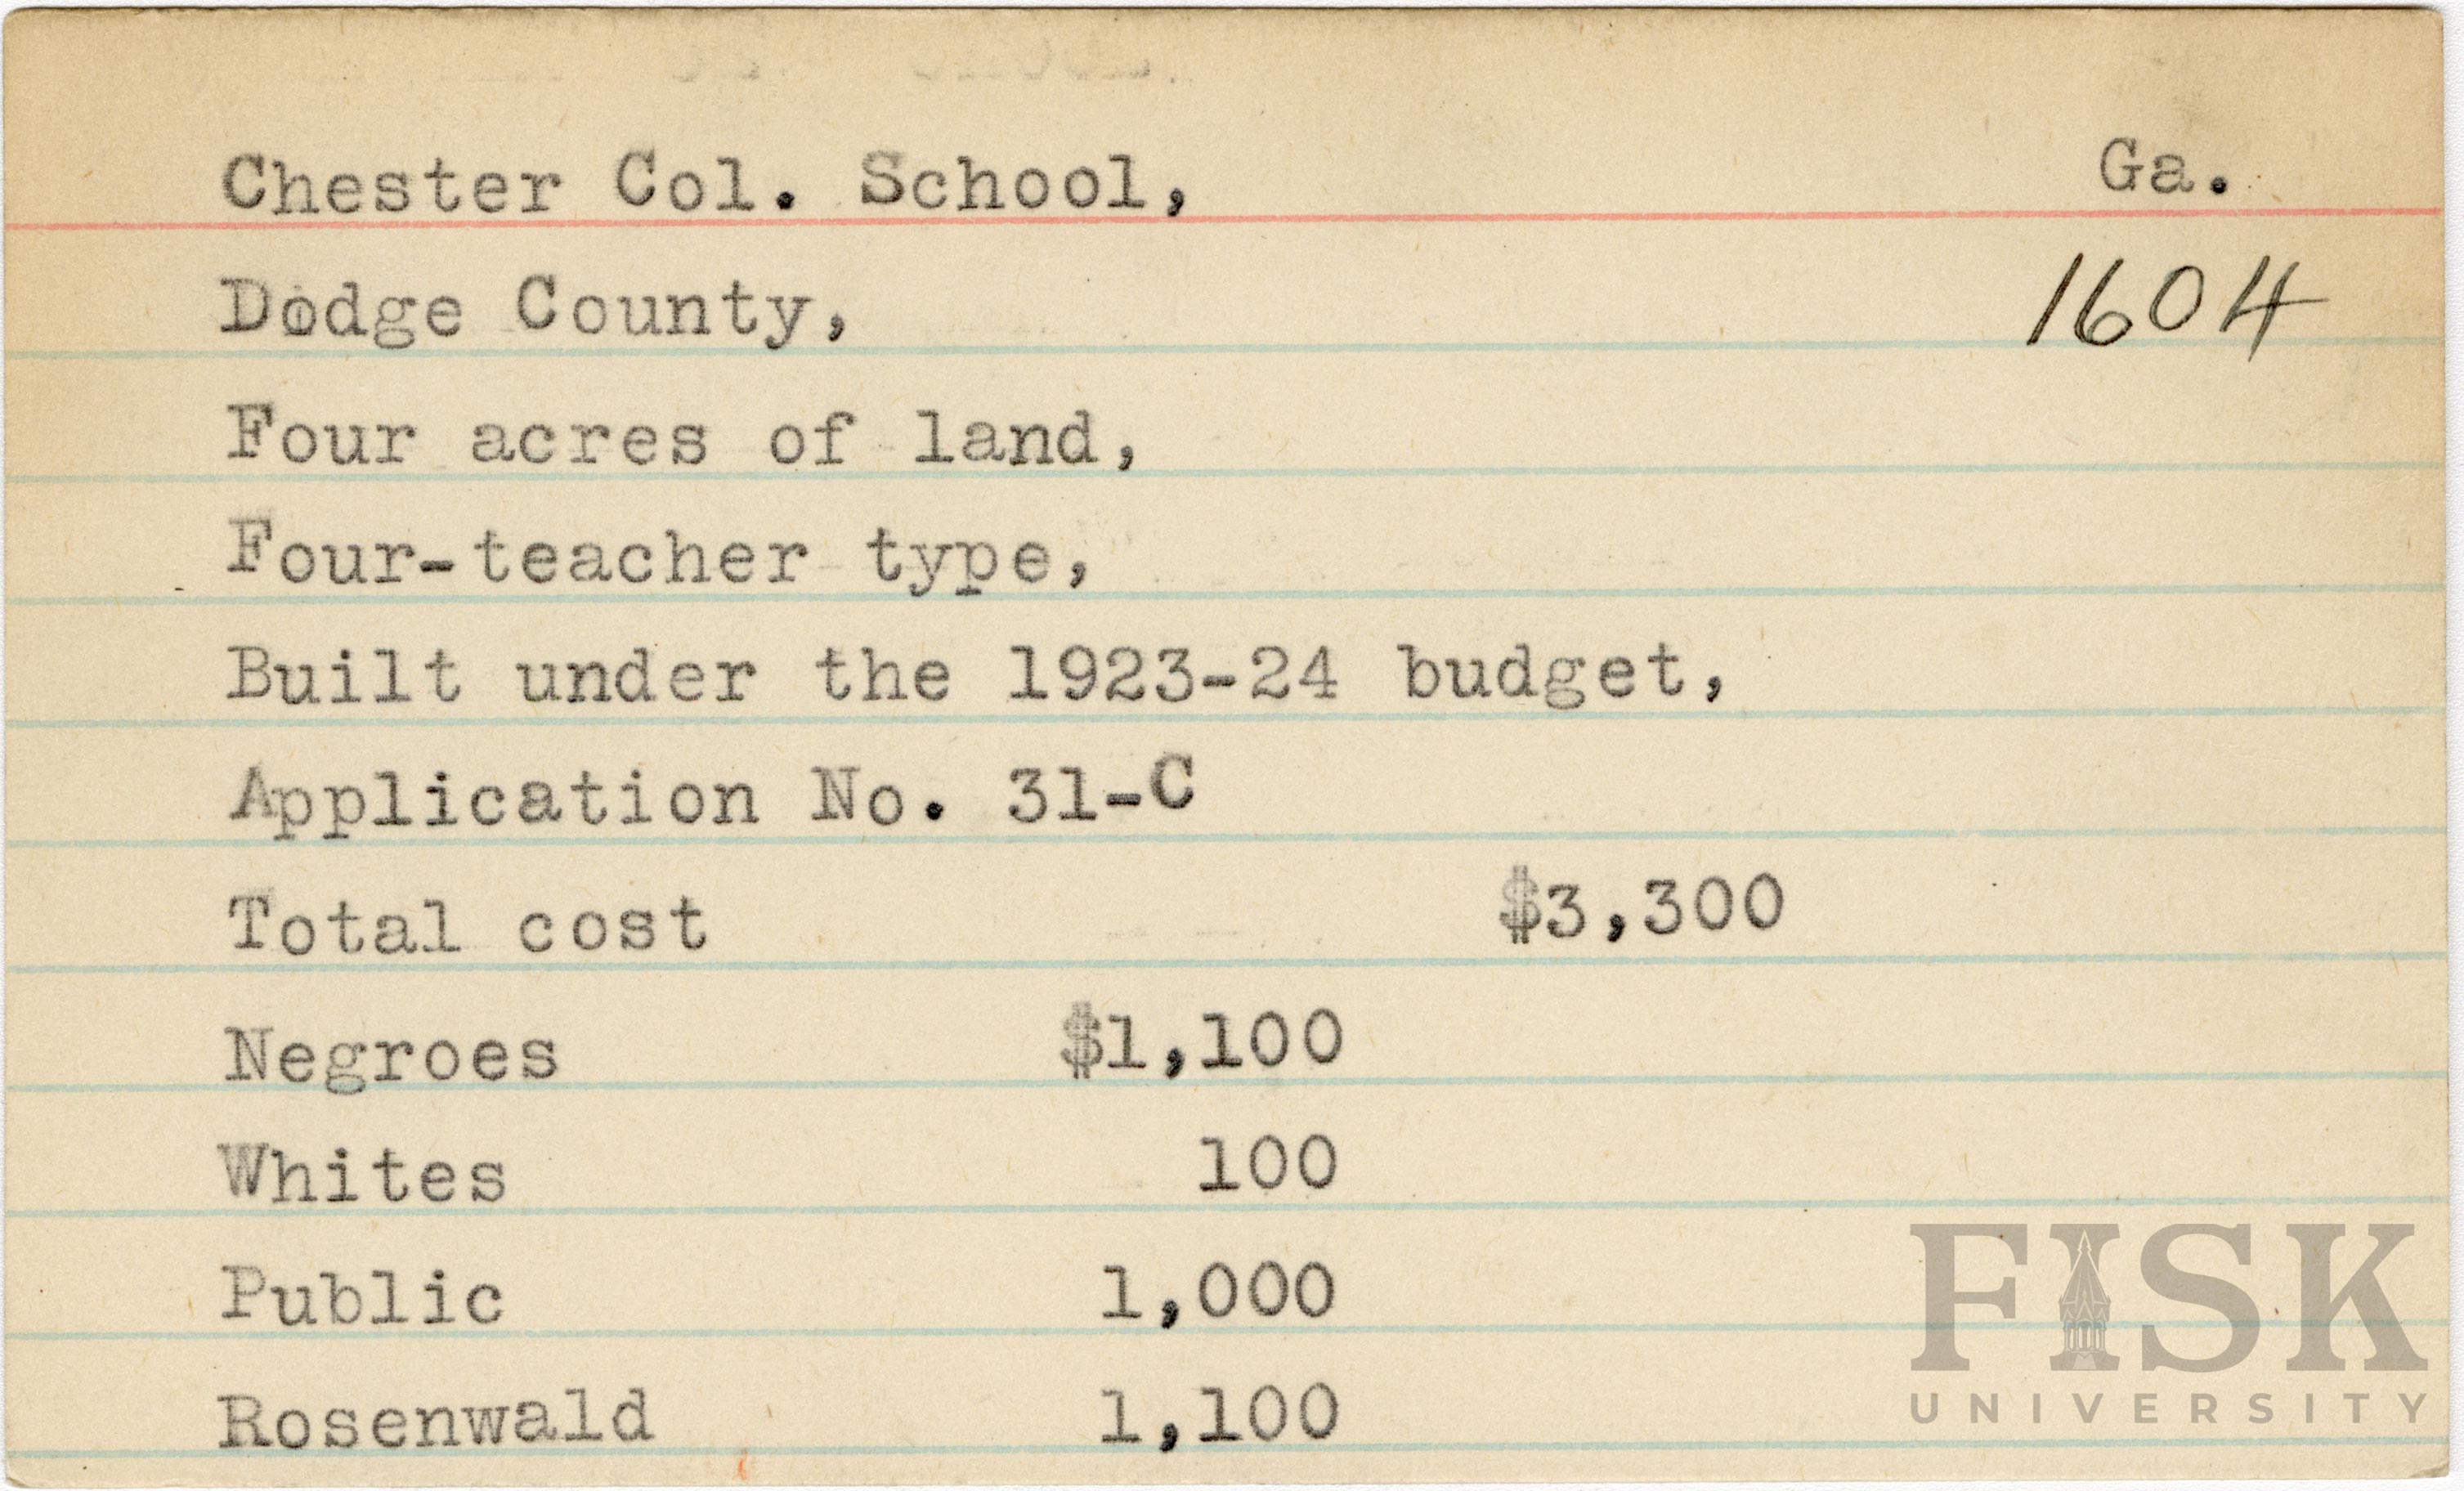 Chester Col. School, Ga.
Dodge County, 1604
Four acres of land,
Four-teacher type,
Built under the 1923-24 budget,
Application No. 31-C
Total cost $3,300
Negroes $1,100
Whites 100
Public 1,000
Rosenwald 1,100
FISK
UNIVERSITY